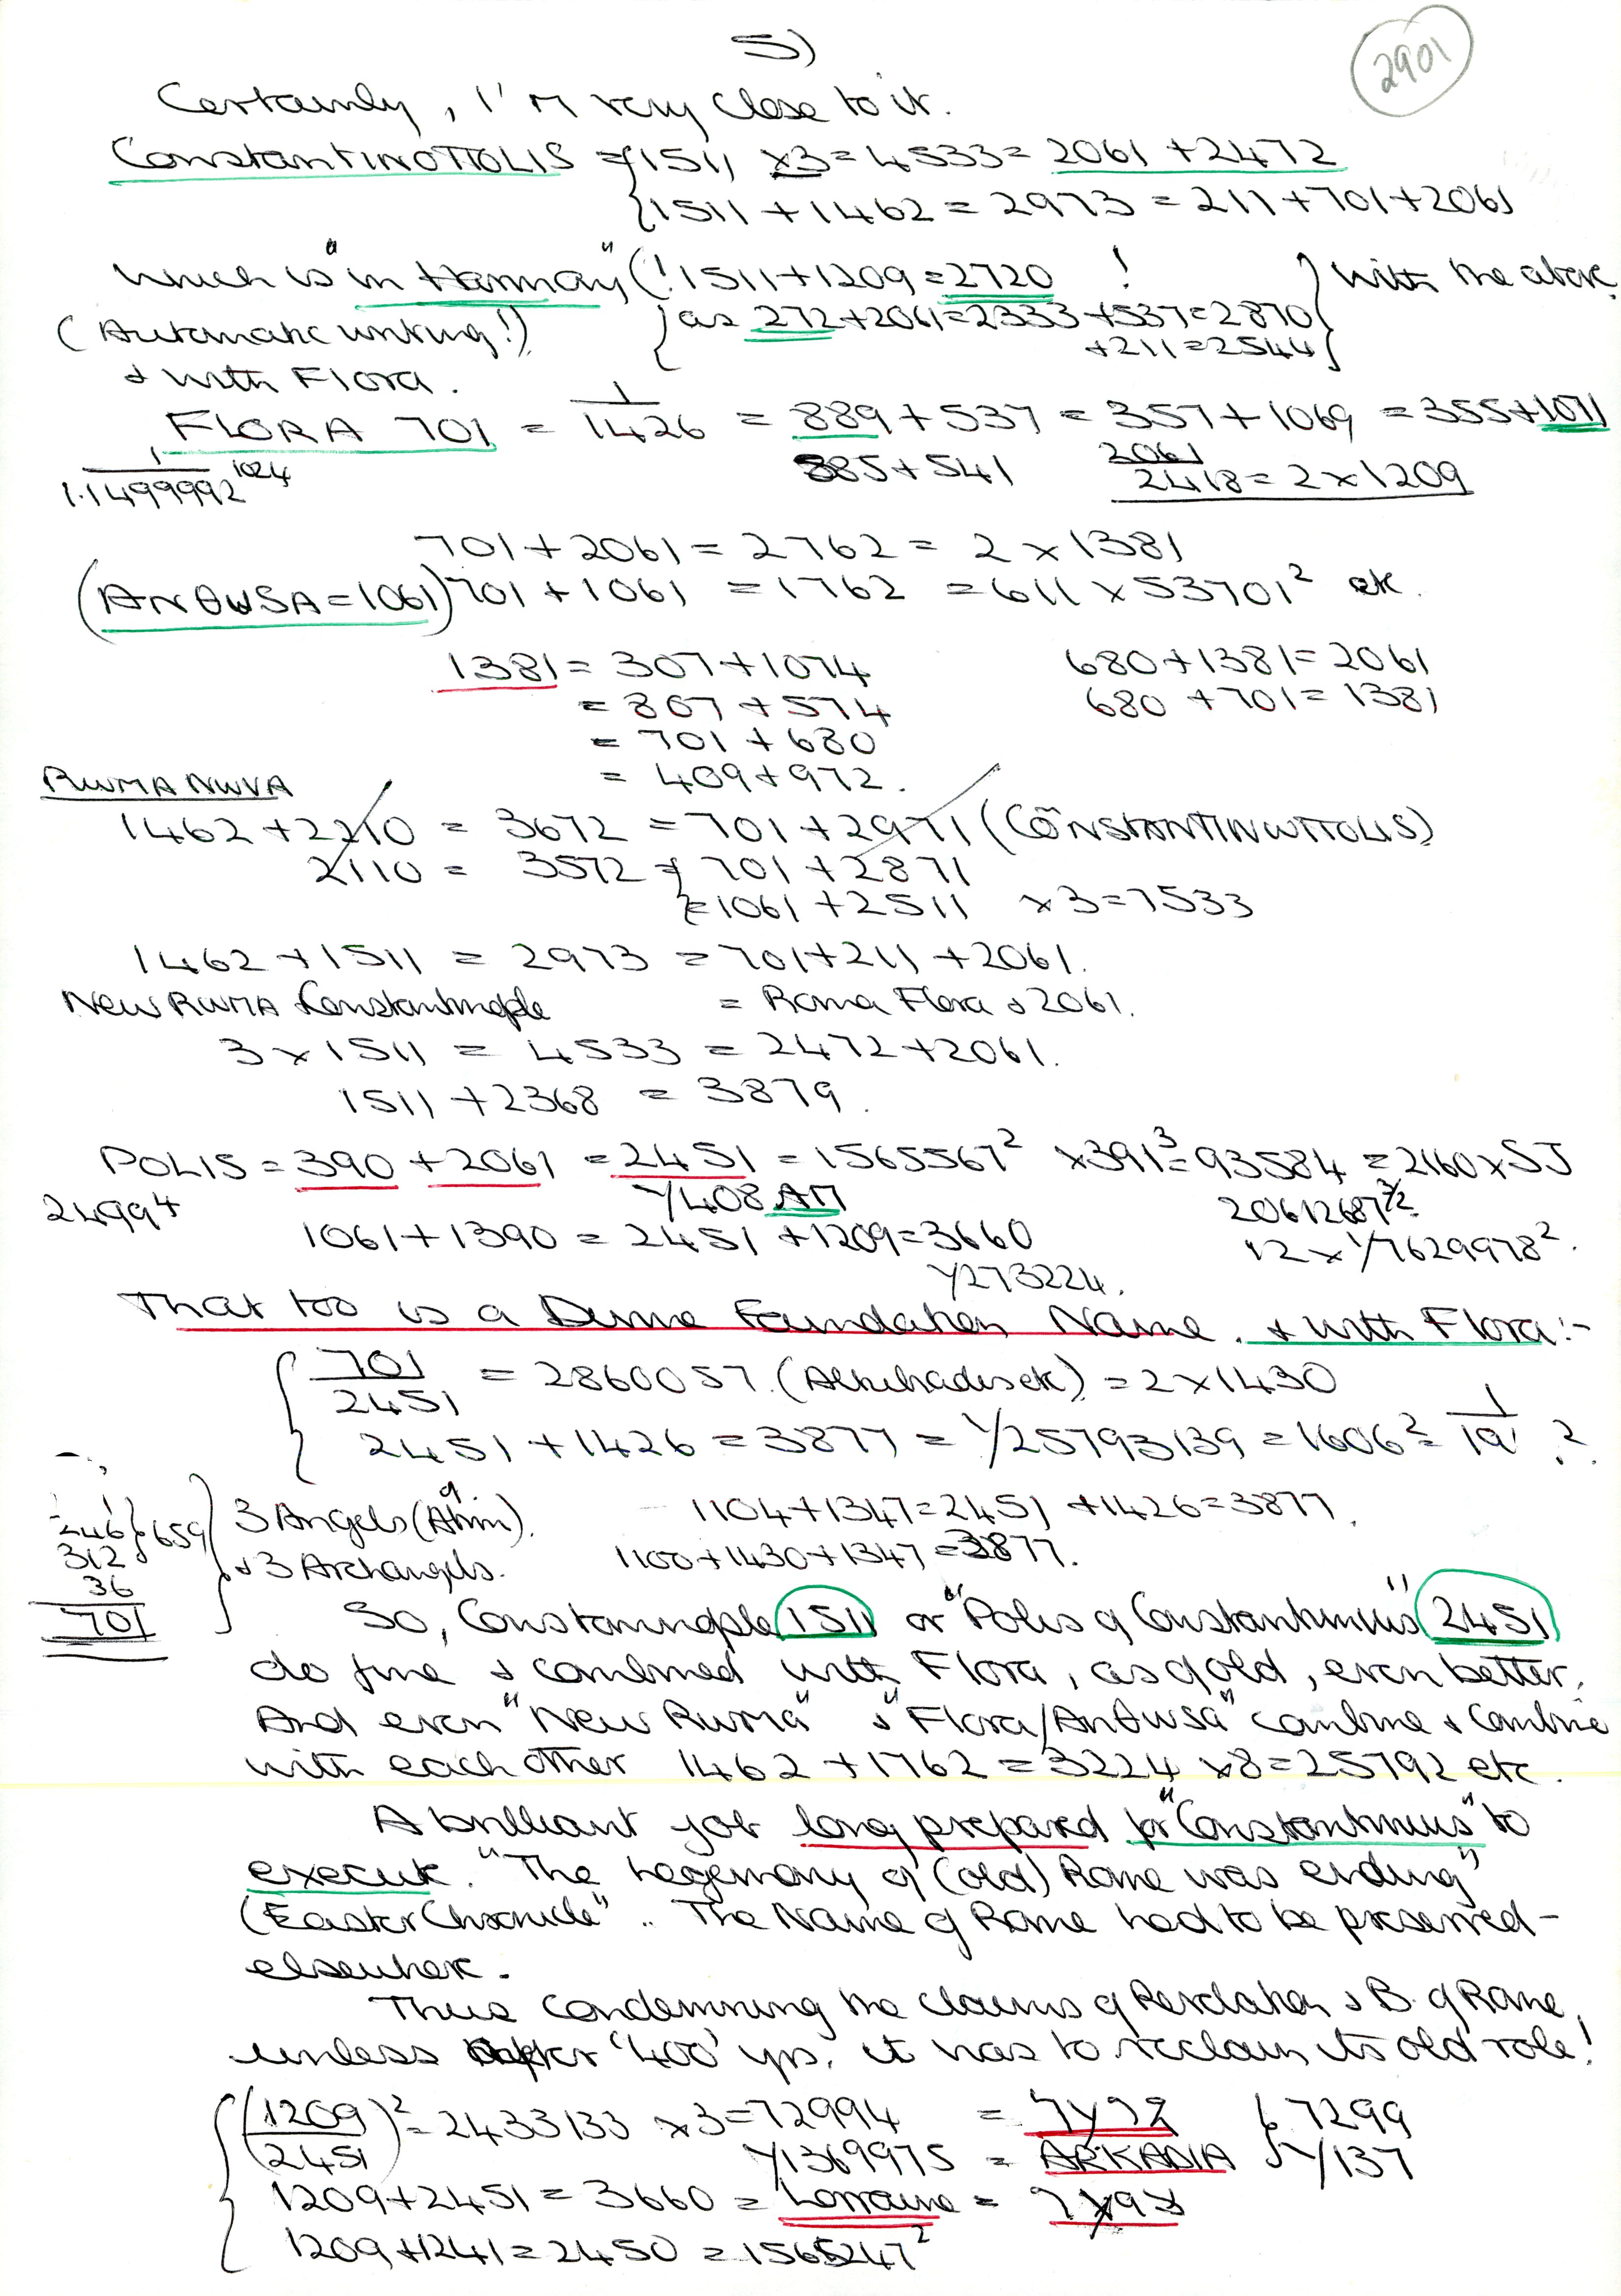 5)
2901
Certainly, I'm very close to it.
CONSTANTINOΠOLIS = 1511 x3 = 4533 = 2061 + 2472
1511 + 1462 = 2973 = 211 + 701 + 2061
which is "in Harmony" (! 1511 + 1209 = 2720 ! } with the above.
(Automatic writing!) as 272 + 2061 = 2333 + 537 = 2870
+ 211 = 2544
& with Flora.
FLORA 701 = 1/1426 = 889 + 537 = 357 + 1069 = 355 + 1071
1/1.1499992 1024 885 + 541 2061
2418 = 2 x 1209
701 + 2061 = 2762 = 2 x 1381
(ANΘWSA = 1061) 701 + 1061 = 1762 = 611 x 53701² etc.
1381 = 307 + 1074 680 + 1381 = 2061
= 807 + 574 680 + 701 = 1381
= 701 + 680
= 409 + 972.
RWMA NWVA
1462 + 2210 = 3672 = 701 + 2971 (CONSTANTINWΠOLIS)
2110 = 3572 = 701 + 2871
= 1061 + 2511 x3 = 7533
1462 + 1511 = 2973 = 701 + 211 + 2061.
New RWMA Constantinople = Roma Flora & 2061.
3 x 1511 = 4533 = 2472 + 2061.
1511 + 2368 = 3879.
POLIS = 390 + 2061 = 2451 = 1565567² x 391³ = 93584 = 2160 x SJ
2499⁴ Y408 AΠ 20612687 3/2
1061 + 1390 = 2451 + 1209 = 3660 12 x Y7629978².
Y273224.
That too is a Divine Foundation Name. & with Flora:-
701/2451 = 2860057. (Alkibiades etc) = 2 x 1430
2451 + 1426 = 3877 = Y25793139 = 1606² = 1/19' ?
246 } 659 3 Angels (Ahim). 1104 + 1347 = 2451 + 1426 = 3877.
312 & 3 Archangels. 1100 + 1430 + 1347 = 3877.
36
701 So, Constantinople 1511 or "Polis of Constantinus" 2451
do fine & combined with Flora, as gold, even better.
And even "New Rwma" & "Flora/AnΘWSA" combine & combine
with each other 1462 + 1762 = 3224 x8 = 25792 etc.
A brilliant job long prepared for "Constantinus" to
execute. "The hegemony of (old) Rome was ending"
(Easter Chronicle".. The Name of Rome had to be preserved -
elsewhere.
Thus condemning the claims of B. of Rome,
unless after '400' yrs. it has to reclaim its old role!
(1209/2451)² = 2433133 x3 = 72994 = } 7299
Y1369975 = ARKADIA } Y137
1209 + 2451 = 3660 = Lorraine =
1209 + 1241 = 2450 = 1565247²